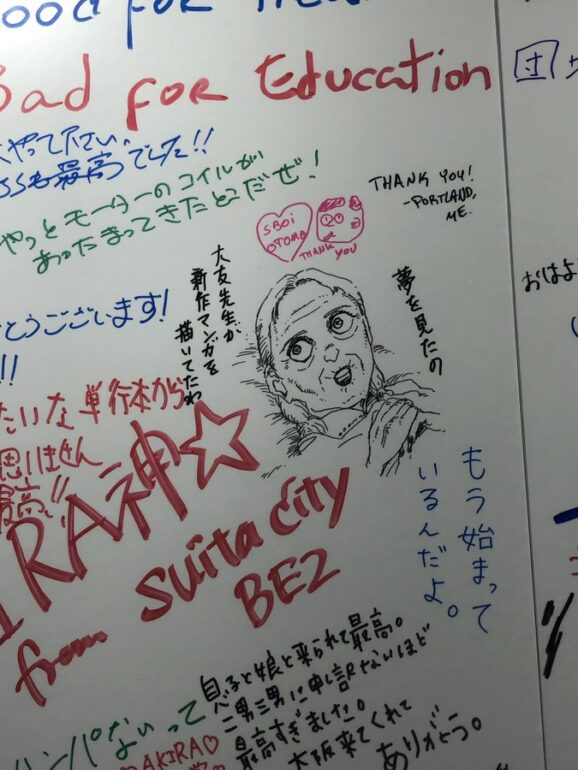 Good for Health
Bad for Education
やって下さい。
も最高でした!!
やっとモーターのコイルが
あったまってきたところだぜ!
THANK YOU!
-PORTLAND,
ME.
SBOi
OTOMO
THANK YOU
大友先生が
新作マンガを
描いてたわ
夢を見たの
とうございます!
!!
たいな単行本から
思いません
最高!!
RA神☆
from suita city
BE2
もう始まって
いるんだよ。
息子と娘と来られて最高。
二男三男に申し訳ないほど
最高すぎました。
大阪来てくれて
ありがとう。
ハンパないって
♡AKIRA♡
団
おはよ